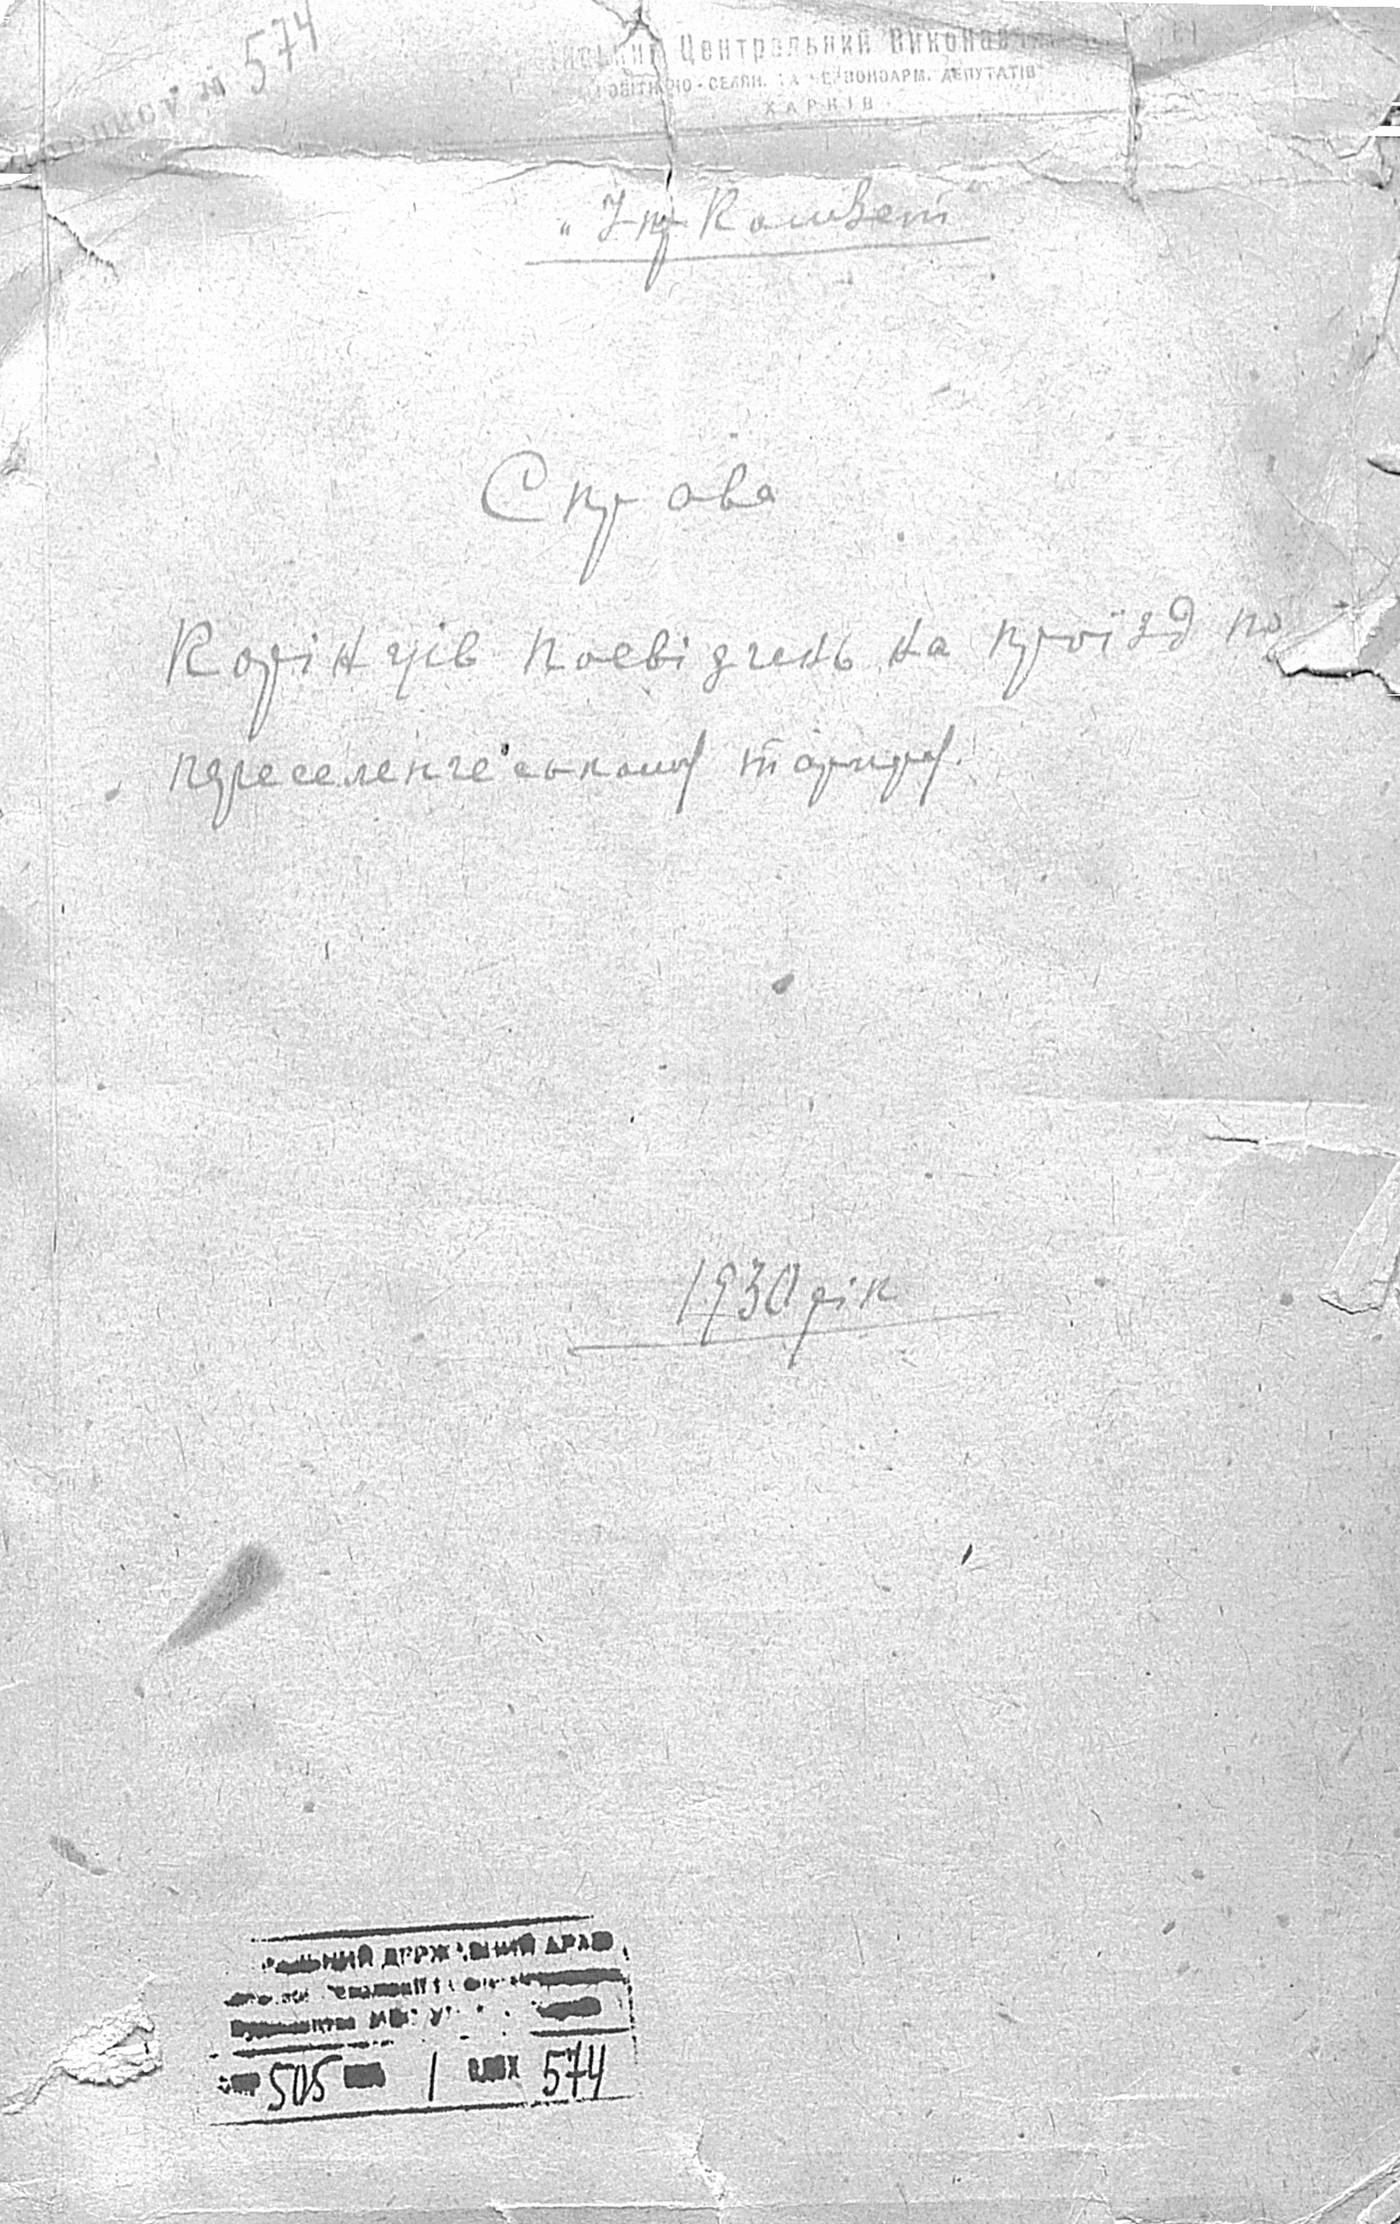 опису № 574
Центральний Виконав
СЕЛЯН. ТА ЧЕРВОНОАРМ. ДЕПУТАТІВ
ХАРКІВ
"Укр Комзет"
Справа
Корінців посвідчень на проїзд по
переселенчеському тарифу.
1930 рік
505 1 574